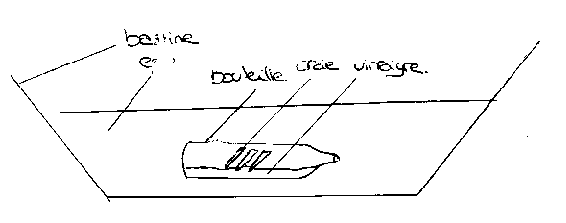 bassine
eau
bouteille craie vinaigre.